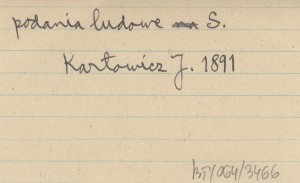 podania ludowe S.
Karłowicz J. 1891
BT/064/3466